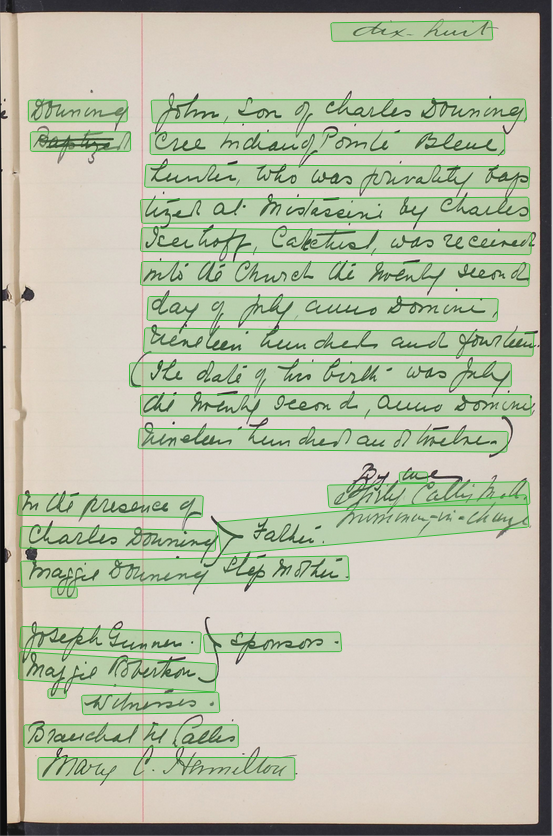 dix-huit
Douning
Baptized
John, son of Charles Douning,
Cree Indian of Pointe Bleue,
hunter, who was privatly bap
tized at Mistassini by Charles
Iserhoff, Catechist, was received
into the Church the twenty second
day of July, anno Domini,
nineteen hundred and fourteen.
(The date of his birth was July
the twenty second, anno Domini,
nineteen hundred and twelve)
By me
Callis
missionary-in-charge
In the presence of
Charles Douning } Father.
Maggie Douning Step Mother.
Joseph Gunner. } sponsors.
Maggie Robertson
Witnesses.
Callis
Mary C. Hamilton.